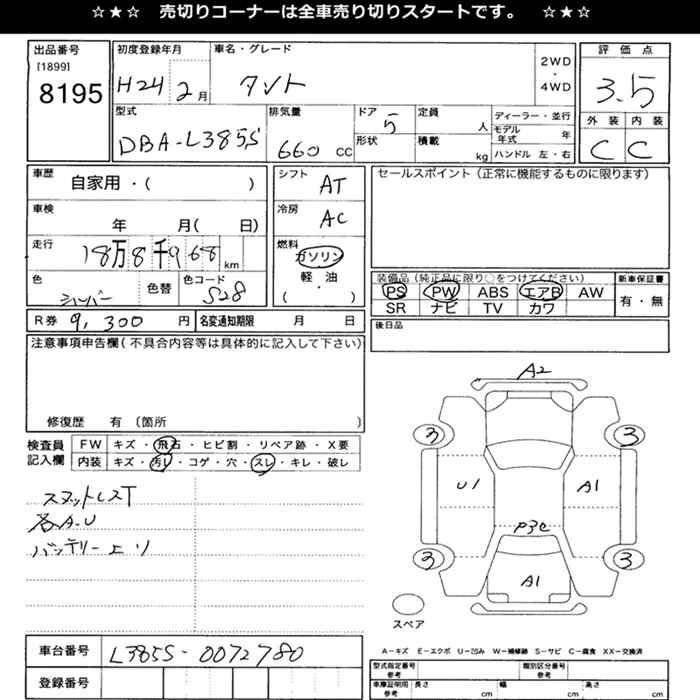 ☆★☆ 売切りコーナーは全車売り切りスタートです。 ☆★☆
出品番号
[1899]
8195
初度登録年月
H24 2月
車名・グレード
タント
2WD
・
4WD
評価点
3.5
外装 内装
C C
型式
DBA-L385S
排気量
660 CC
ドア 5
形状
定員 人
積載 kg
ディーラー・並行
モデル年式 年
ハンドル 左・右
車歴
自家用・( )
車検
年 月( 日)
走行
18万8千968 km
色
シルバー
色替
色コード
S28
シフト
AT
冷房
AC
燃料
ガソリン
軽・油
( )
セールスポイント (正常に機能するものに限ります)
装備品 (純正品に限り○をつけてください)
PS PW ABS エアB AW
SR ナビ TV カワ
新車保証書
有・無
後日品
R券 9,300 円
名変通知期限 月 日
注意事項申告欄 (不具合内容等は具体的に記入して下さい)
修復歴 有 (箇所 )
検査員
記入欄
FW キズ・飛石・ヒビ割・リペア跡・X要
内装 キズ・汚レ・コゲ・穴・スレ・キレ・破レ
各A.U
バッテリー上り
A2
3 3
U1 A1
P3C
3 3
A1
スペア
A－キズ E－エクボ U－凹み W－補修跡 S－サビ C－腐食 XX－交換済
車台番号
L385S-0072780
登録番号
型式指定番号
参考
類別区分番号
参考
車庫証明用
参考
長さ cm
幅 cm
高さ cm